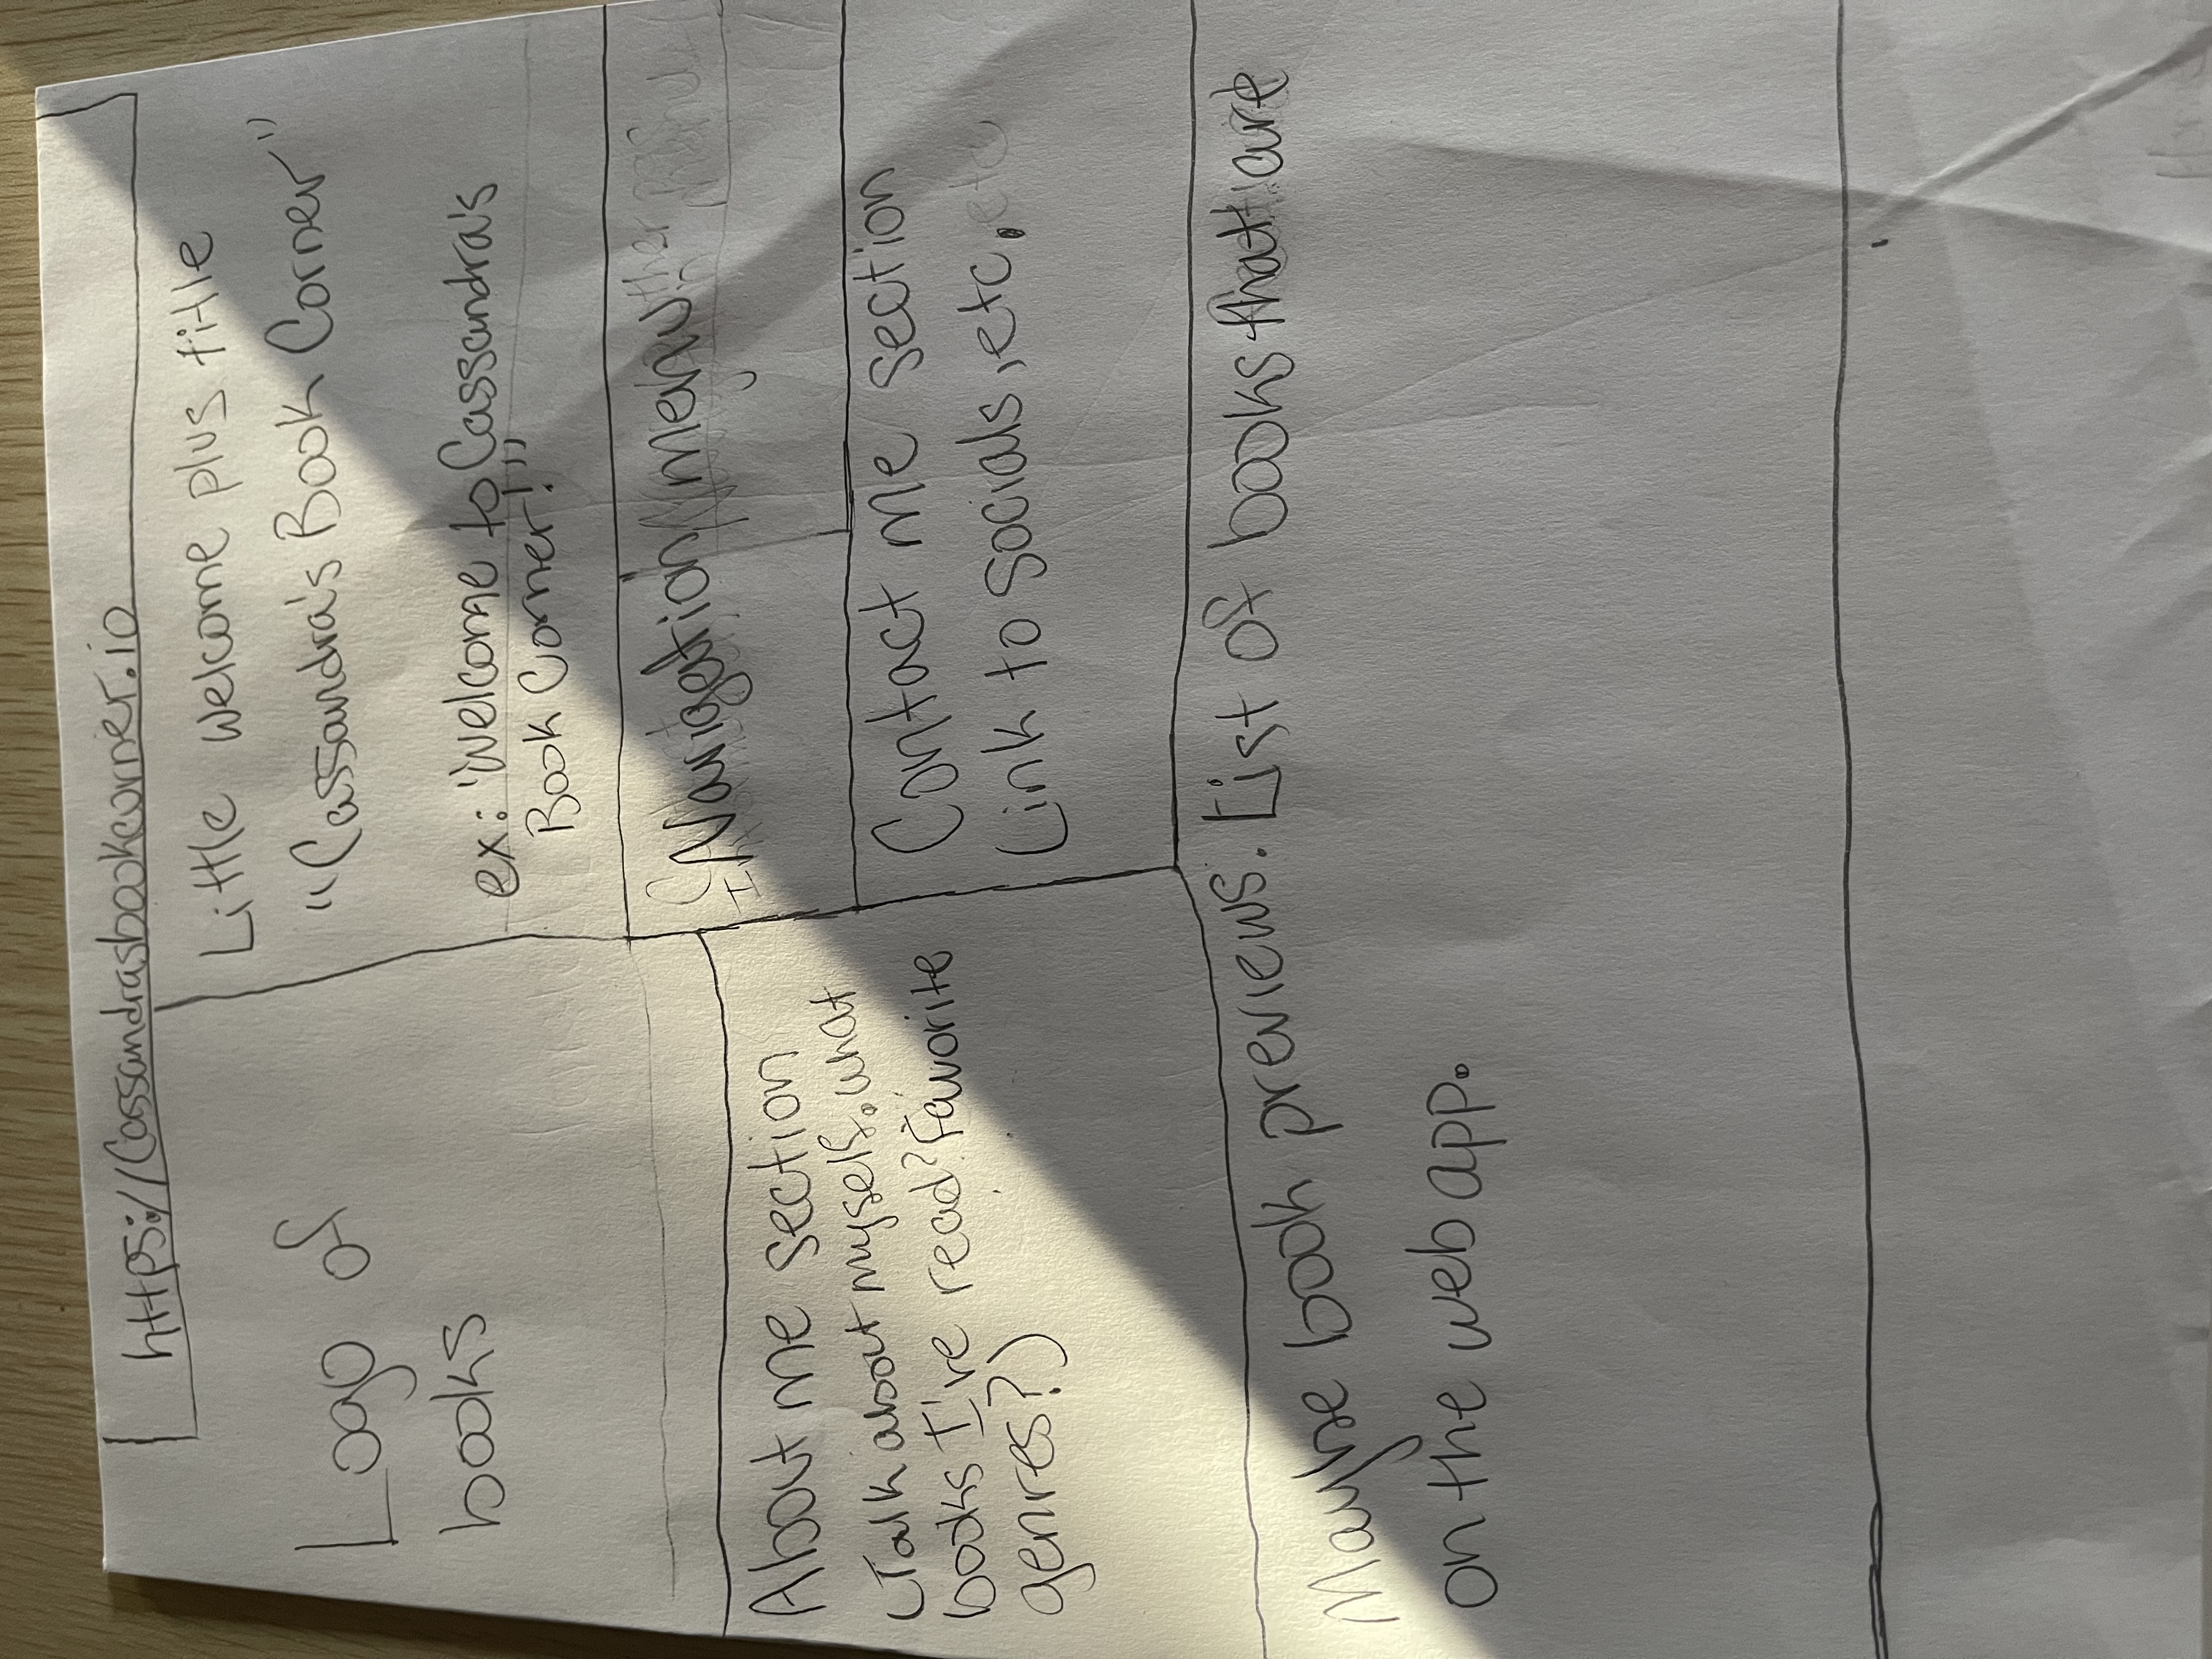 https://Cassandrasbookcorner.io
Logo of
books
Little welcome plus title
"Cassandra's Book Corner"
ex: "Welcome to Cassandra's
Book Corner!"
Navigation menu
About me section
(Talk about myself. what
books I've read? Favorite
genres?)
Contact me section
Link to socials, etc.
Maybe book previews. List of books that are
on the web app.